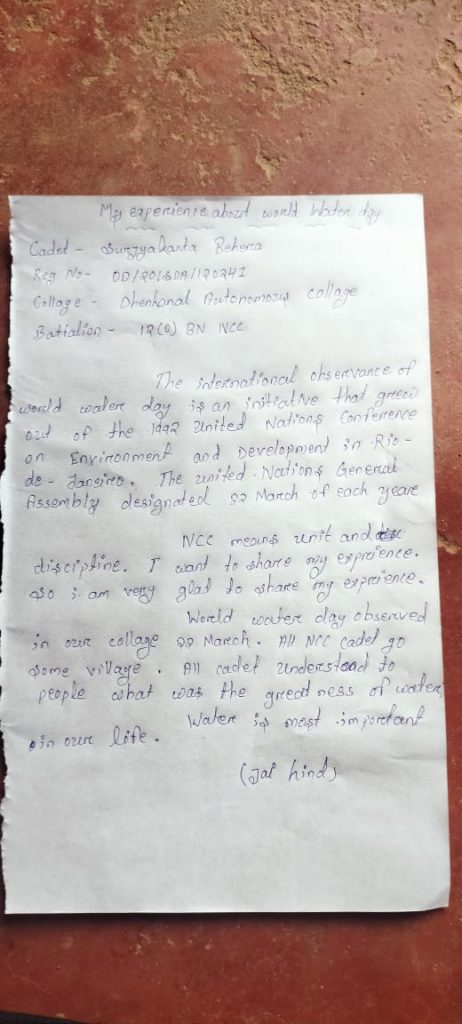 My experience about world Water day
Cadet - Surjyakanta Behera
Reg No-
Collage - Dhenkanal Autonomous collage
Battalion - 12(O) BN NCC
The international observance of
world water day is an initiative that grew
out of the 1992 United Nations Conference
on Environment and Development in Rio-
de - Janeiro. The united Nations General
Assembly designated 22 March of each year
NCC means unit and
discipline. I want to share my expreience.
so i am very glad to share my expreience.
World water day observed
in our collage 22 March. All NCC cadet go
some village. All cadet understood to
people what was the greatness of water
Water is most important
in our life.
(Jai hind)